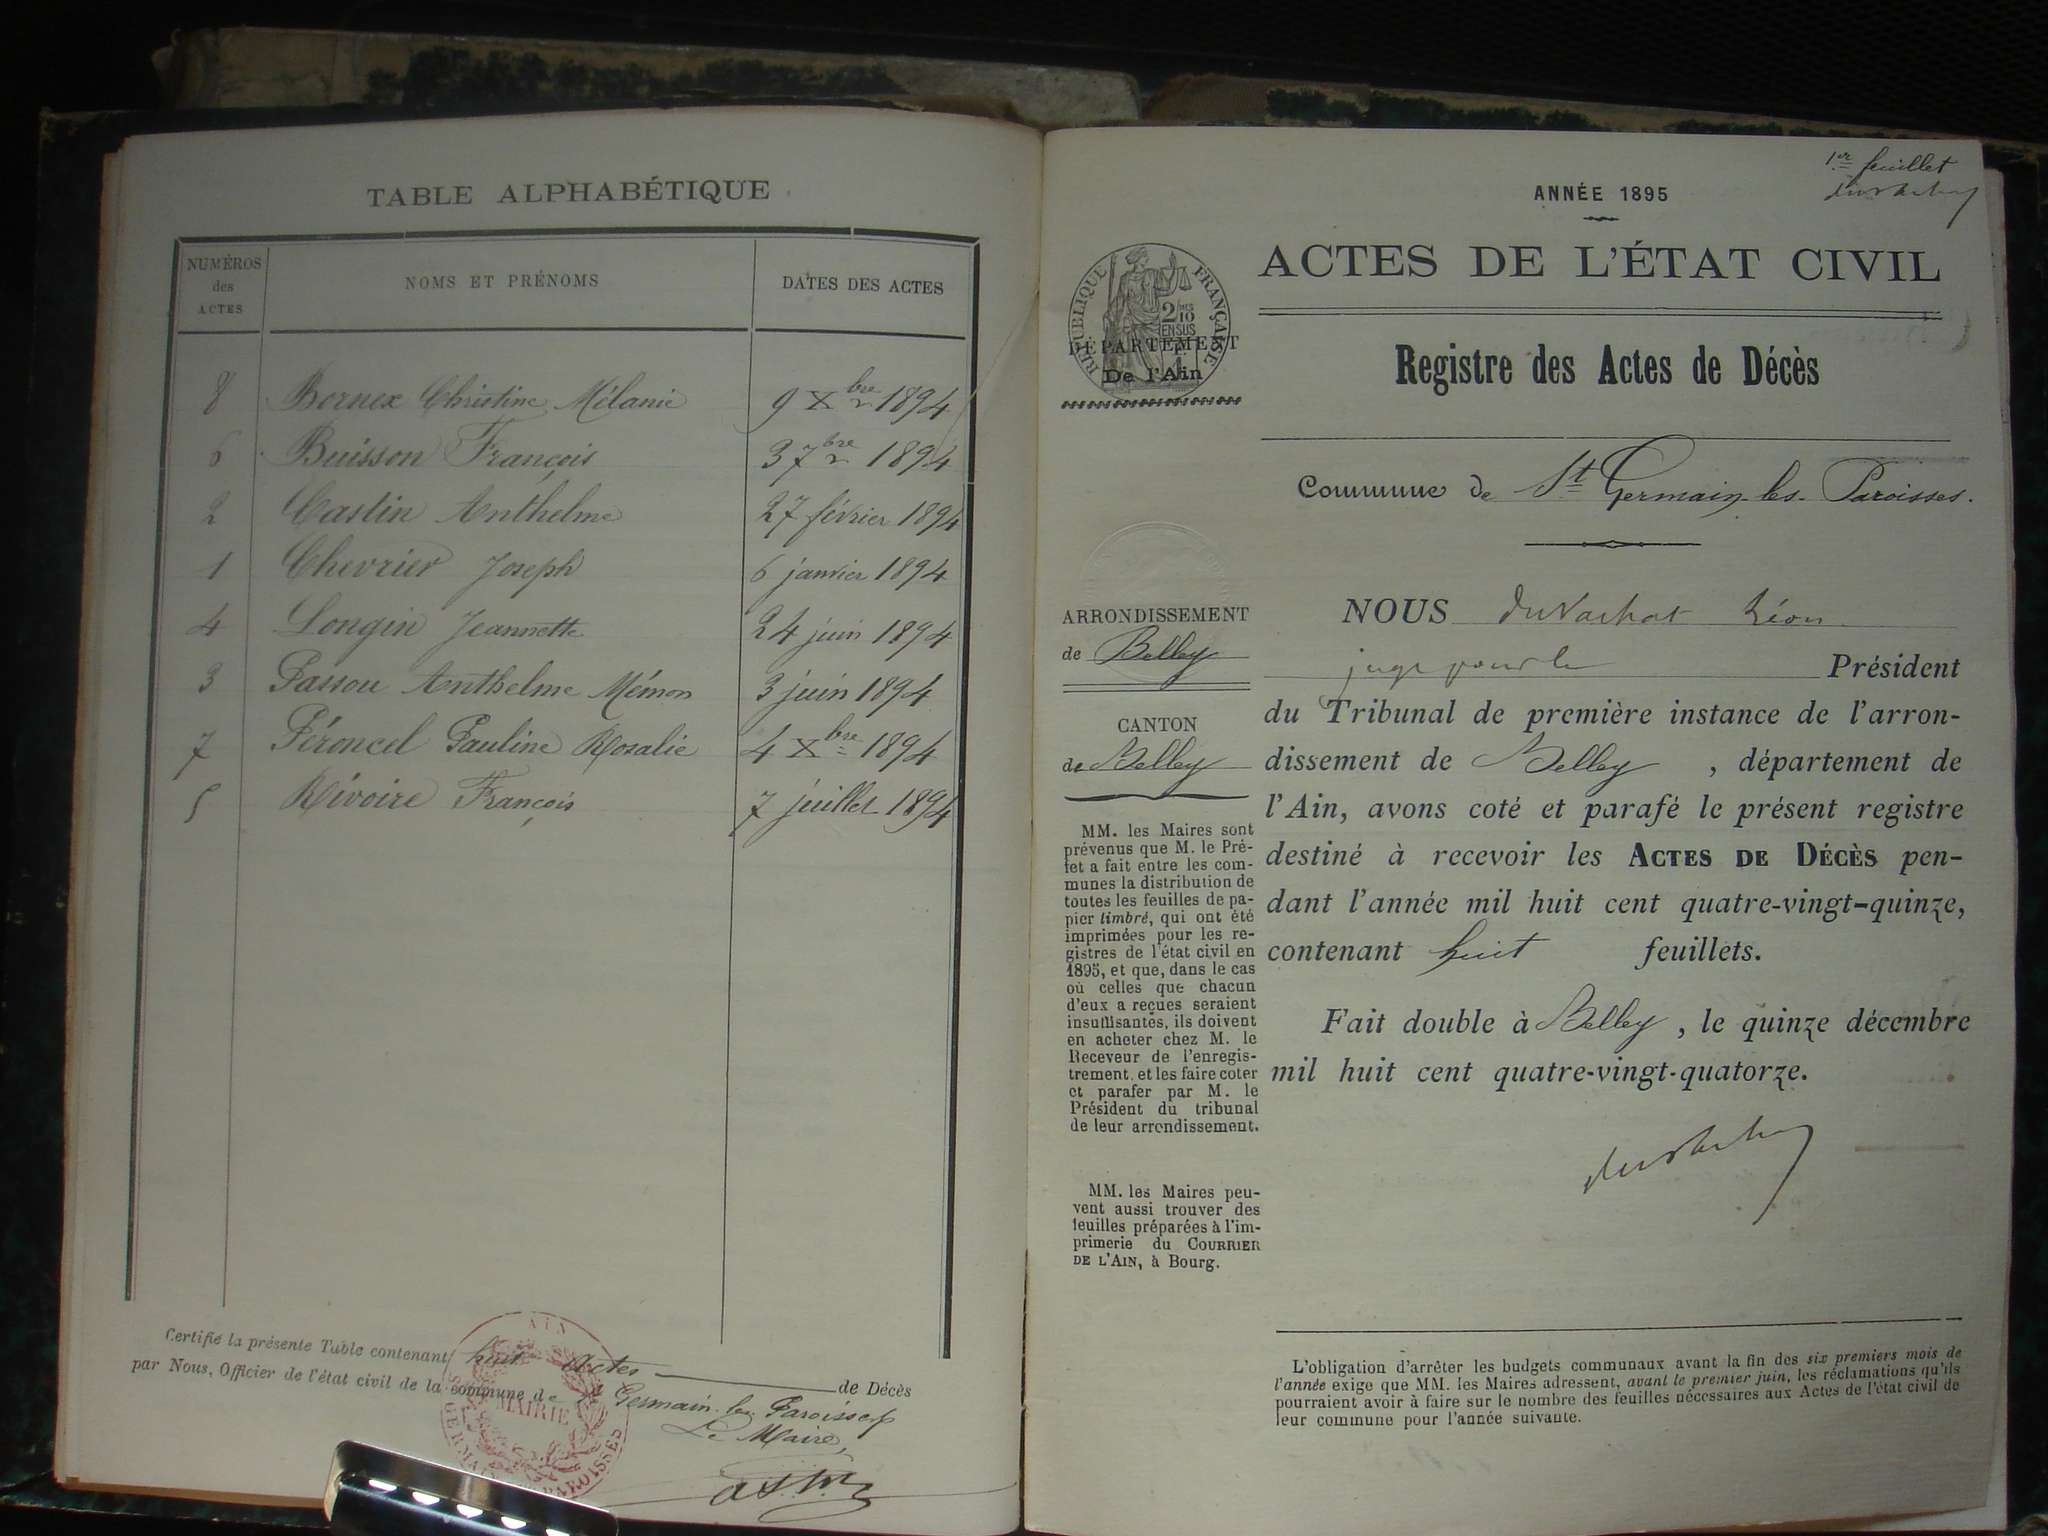 TABLE ALPHABÉTIQUE
NUMÉROS des ACTES
NOMS ET PRÉNOMS
DATES DES ACTES
8 Bernex Christine Mélanie 9 Xbre 1894
6 Buisson François 3 7bre 1894
2 Castin Anthelme 27 février 1894
1 Chevrier Joseph 6 janvier 1894
4 Longin Jeannette 24 juin 1894
3 Passou Anthelme Mémon 3 juin 1894
7 Péroncel Pauline Rosalie 4 Xbre 1894
5 Révoire François 7 juillet 1894
Certifié la présente Table contenant huit Actes de Décès
par Nous, Officier de l'état civil de la commune de St Germain les Paroisses
Le Maire,
AIN
MAIRIE
1er feuillet
ANNÉE 1895
ACTES DE L'ÉTAT CIVIL
RÉPUBLIQUE FRANÇAISE
2/10 EN SUS
DÉPARTEMENT
De l'Ain
Registre des Actes de Décès
Commune de St Germain les Paroisses.
ARRONDISSEMENT
de Belley
CANTON
de Belley
MM. les Maires sont
prévenus que M. le Pré-
fet a fait entre les com-
munes la distribution de
toutes les feuilles de pa-
pier timbré, qui ont été
imprimées pour les re-
gistres de l'état civil en
1895, et que, dans le cas
où celles que chacun
d'eux a reçues seraient
insuffisantes, ils doivent
en acheter chez M. le
Receveur de l'enregis-
trement, et les faire coter
et parafer par M. le
Président du tribunal
de leur arrondissement.
MM. les Maires peu-
vent aussi trouver des
feuilles préparées à l'im-
primerie du COURRIER
DE L'AIN, à Bourg.
NOUS duVachat Léon
juge pour le Président
du Tribunal de première instance de l'arron-
dissement de Belley, département de
l'Ain, avons coté et parafé le présent registre
destiné à recevoir les ACTES DE DÉCÈS pen-
dant l'année mil huit cent quatre-vingt-quinze,
contenant huit feuillets.
Fait double à Belley, le quinze décembre
mil huit cent quatre-vingt-quatorze.
L'obligation d'arrêter les budgets communaux avant la fin des six premiers mois de
l'année exige que MM. les Maires adressent, avant le premier juin, les réclamations qu'ils
pourraient avoir à faire sur le nombre des feuilles nécessaires aux Actes de l'état civil de
leur commune pour l'année suivante.